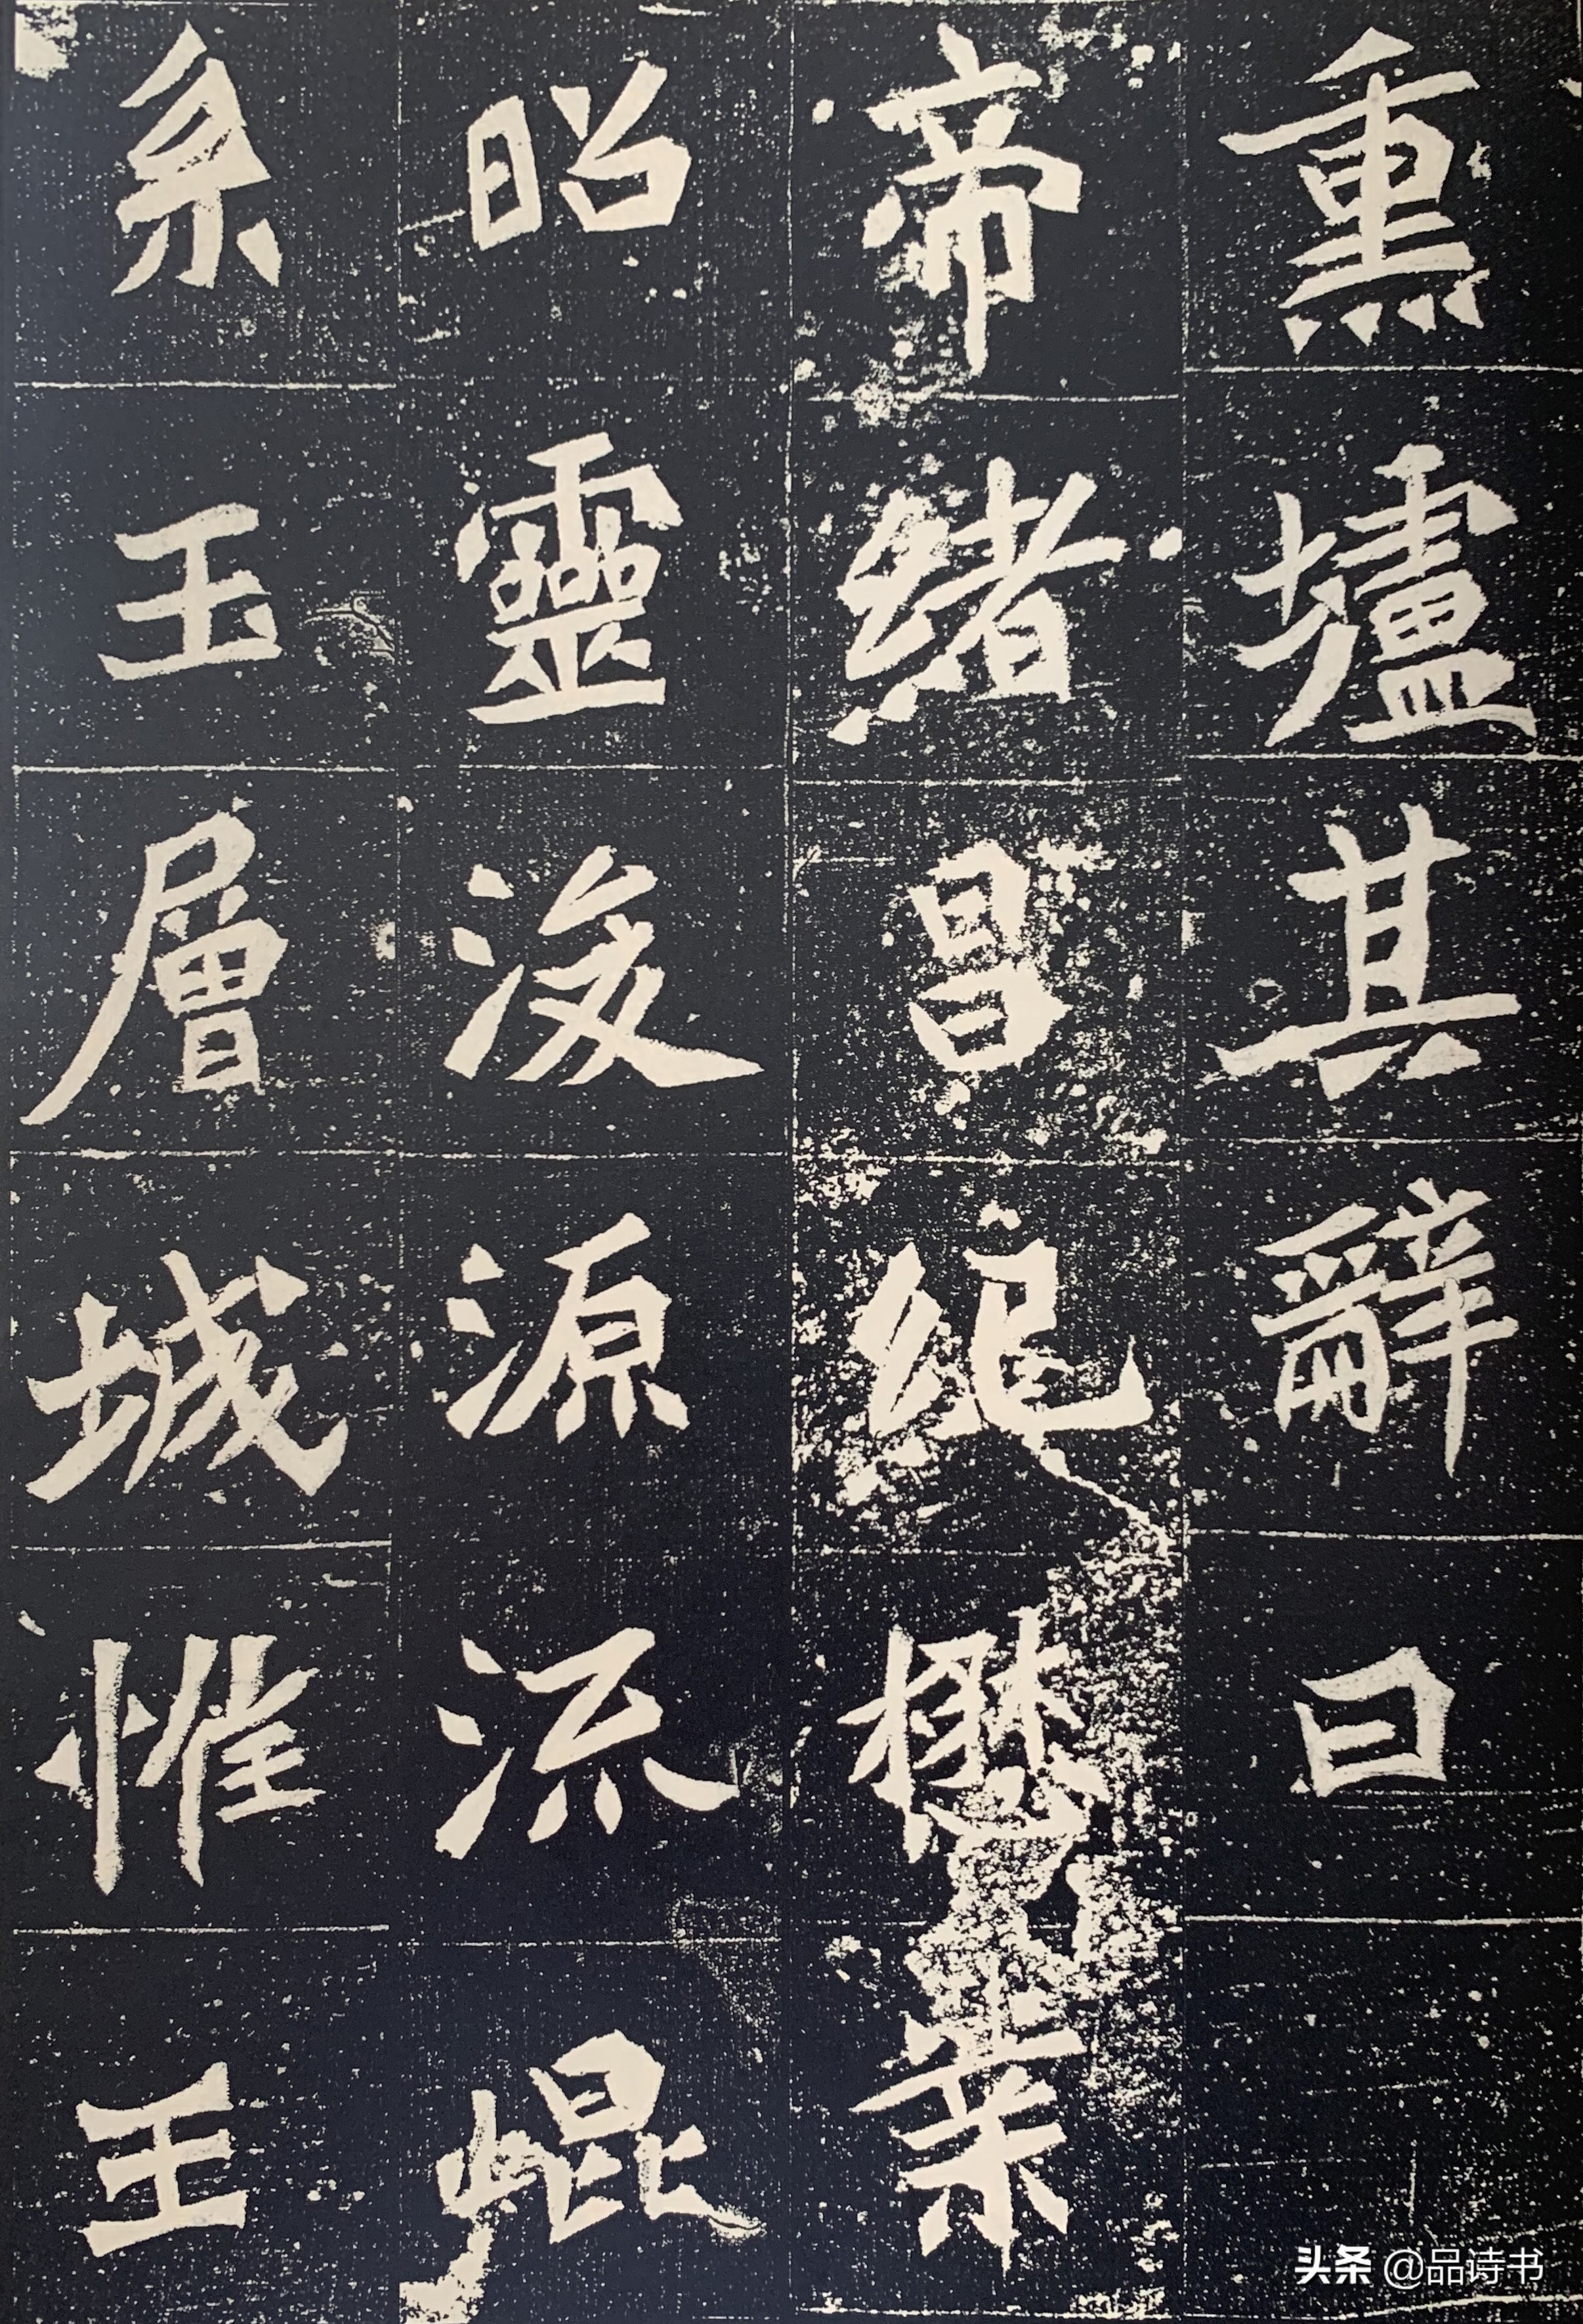 熏壚其辭曰
帝緒昌紀懋業
昭靈浚源流崐
系玉層城惟王
头条 @品诗书